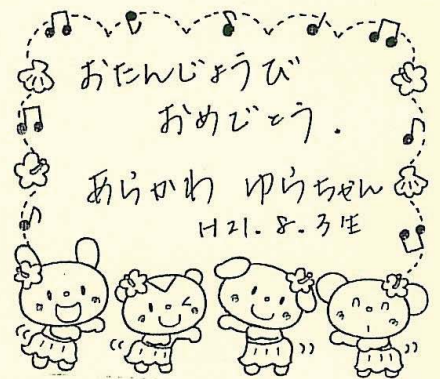 おたんじょうび
おめでとう.
あらかわ ゆらちゃん
H21.8.3生